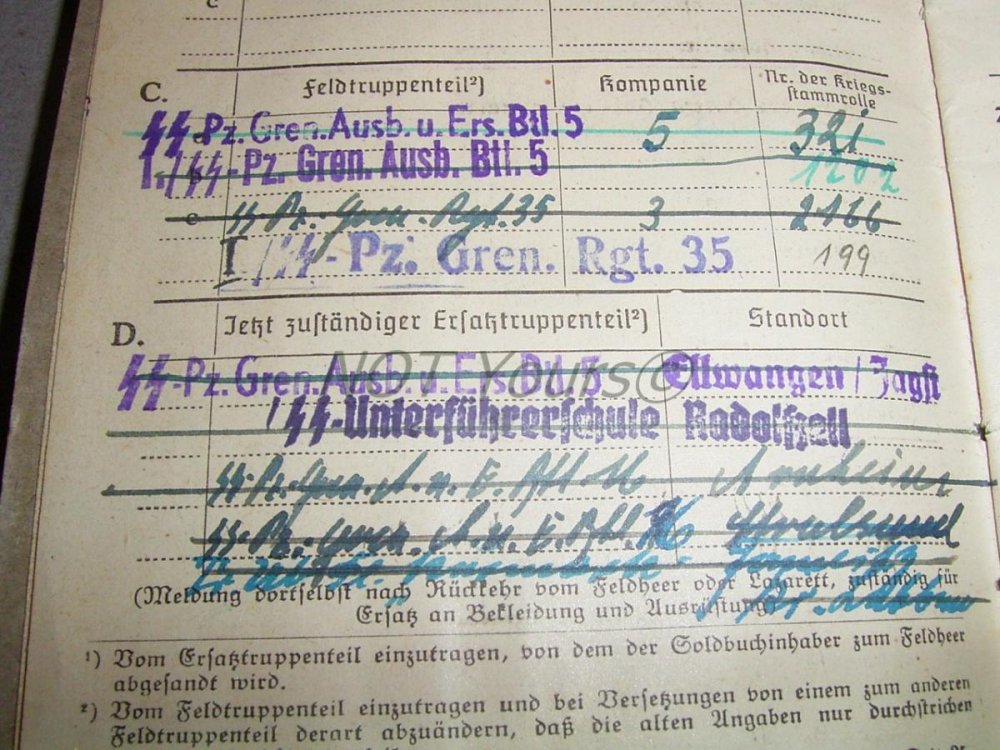 c
C. Feldtruppenteil²) Kompanie Nr. der Kriegs-
stammrolle
SS-Pz. Gren. Ausb. u. Ers. Btl. 5 5 321
I./SS-Pz. Gren. Ausb. Btl. 5 1202
e SS-Pz.-Gren.-Rgt. 35 3 2166
I/SS-Pz. Gren. Rgt. 35 199
D. Jetzt zuständiger Ersatztruppenteil²) Standort
SS-Pz. Gren. Ausb. u. Ers. Btl. 5 Ellwangen / Jagst
NOT Yours©
SS-Unterführerschule Radolfzell
SS-Pz.-Gren. A. u. E. Btl. 16 Arnheim
SS-Pz.-Gren. A. u. E. Btl. 16 Stralsund
(Meldung dortselbst nach Rückkehr vom Feldheer oder Lazarett, zuständig für
Ersatz an Bekleidung und Ausrüstung)
¹) Vom Ersatztruppenteil einzutragen, von dem der Soldbuchinhaber zum Feldheer
abgesandt wird.
²) Vom Feldtruppenteil einzutragen und bei Versetzungen von einem zum anderen
Feldtruppenteil derart abzuändern, daß die alten Angaben nur durchstrichen